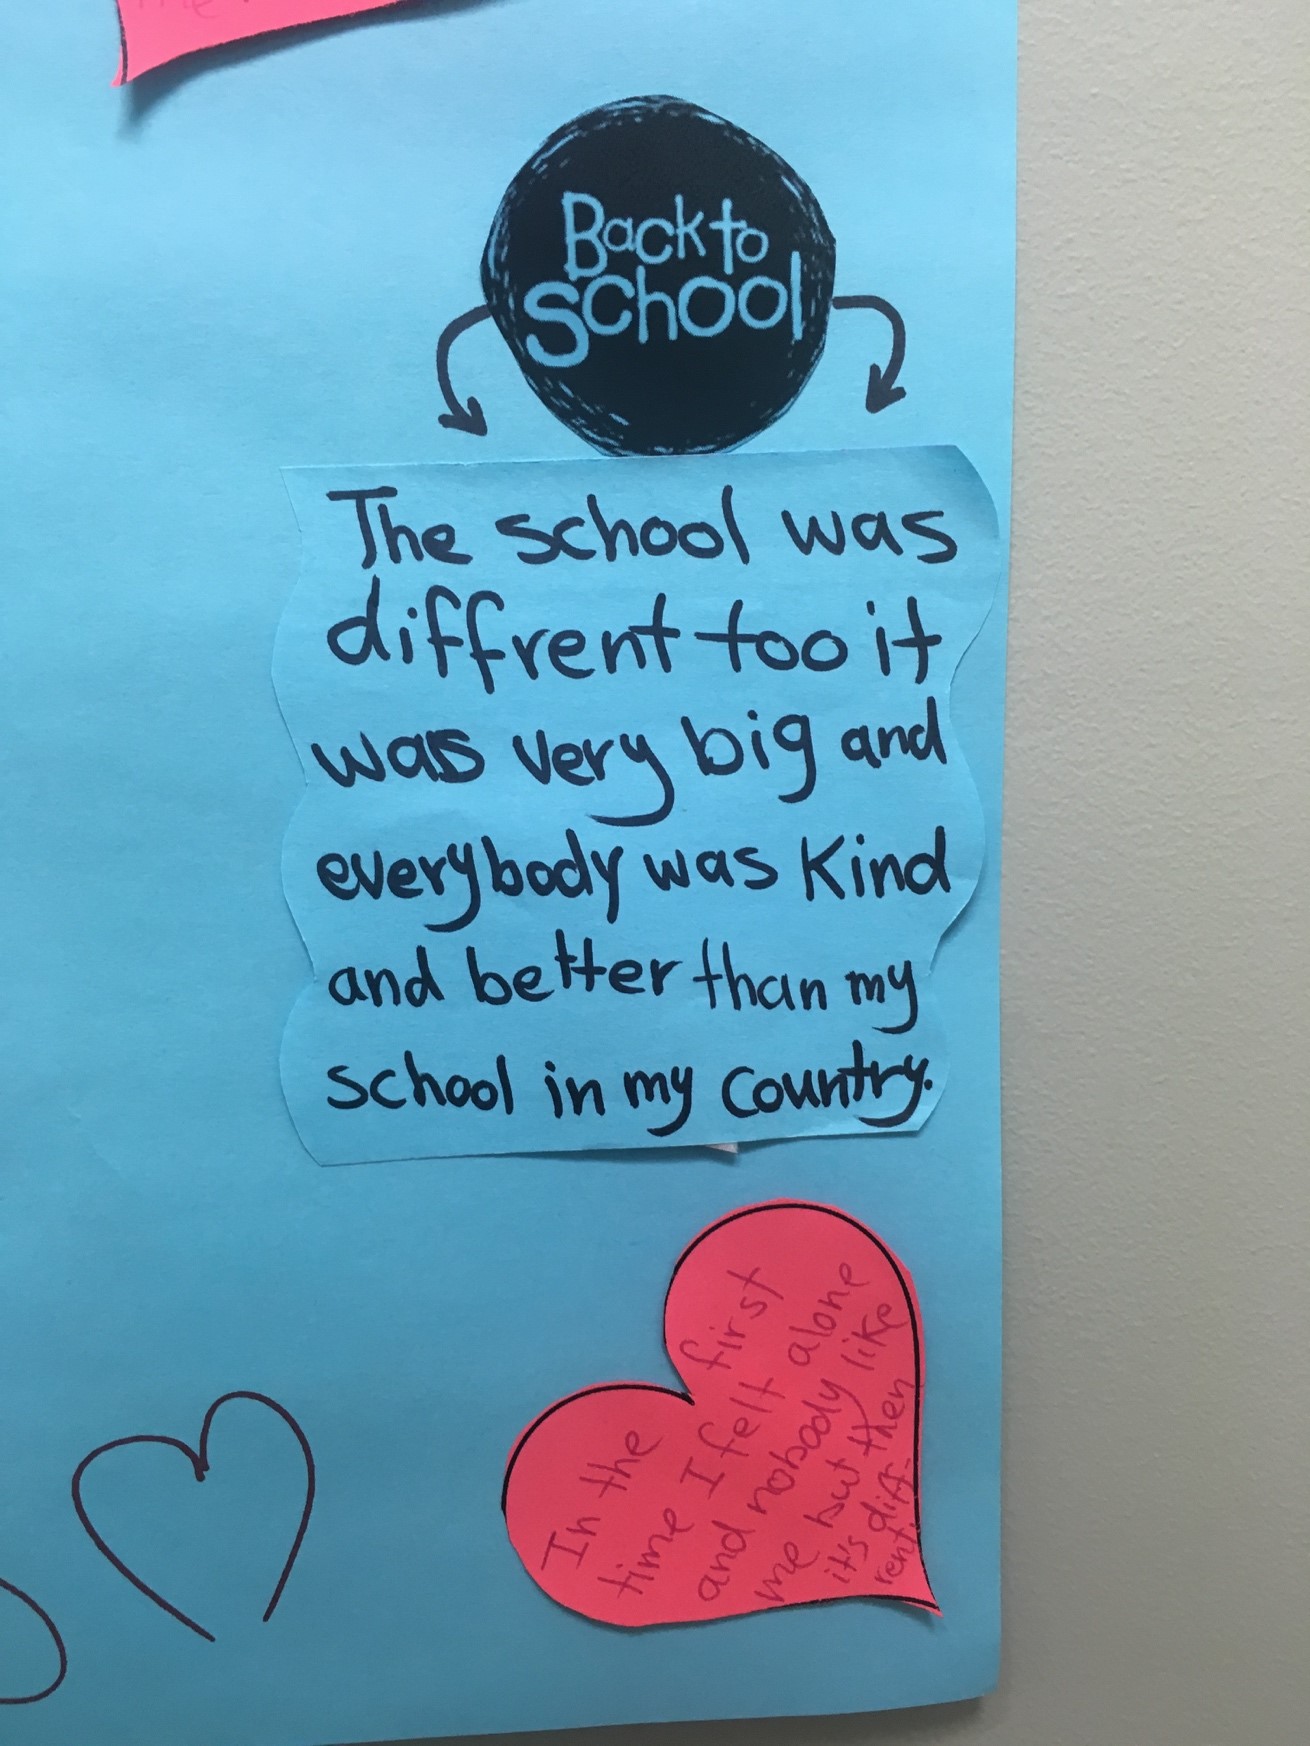 Back to
School
The school was
diffrent too it
was very big and
everybody was kind
and better than my
school in my country.
In the first
time I felt alone
and nobody like
me but then
it's diff-
rent.